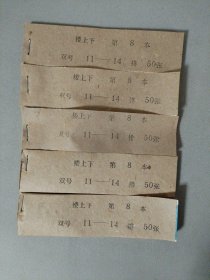 楼上下 第 8 本
双号 11——14 排 50张
楼上下 第 8 本
双号 11——14 排 50张
楼上下 第 8 本
双号 11——14 排 50张
楼上下 第 8 本
双号 11——14 排 50张
楼上下 第 8 本
双号 11——14 排 50张